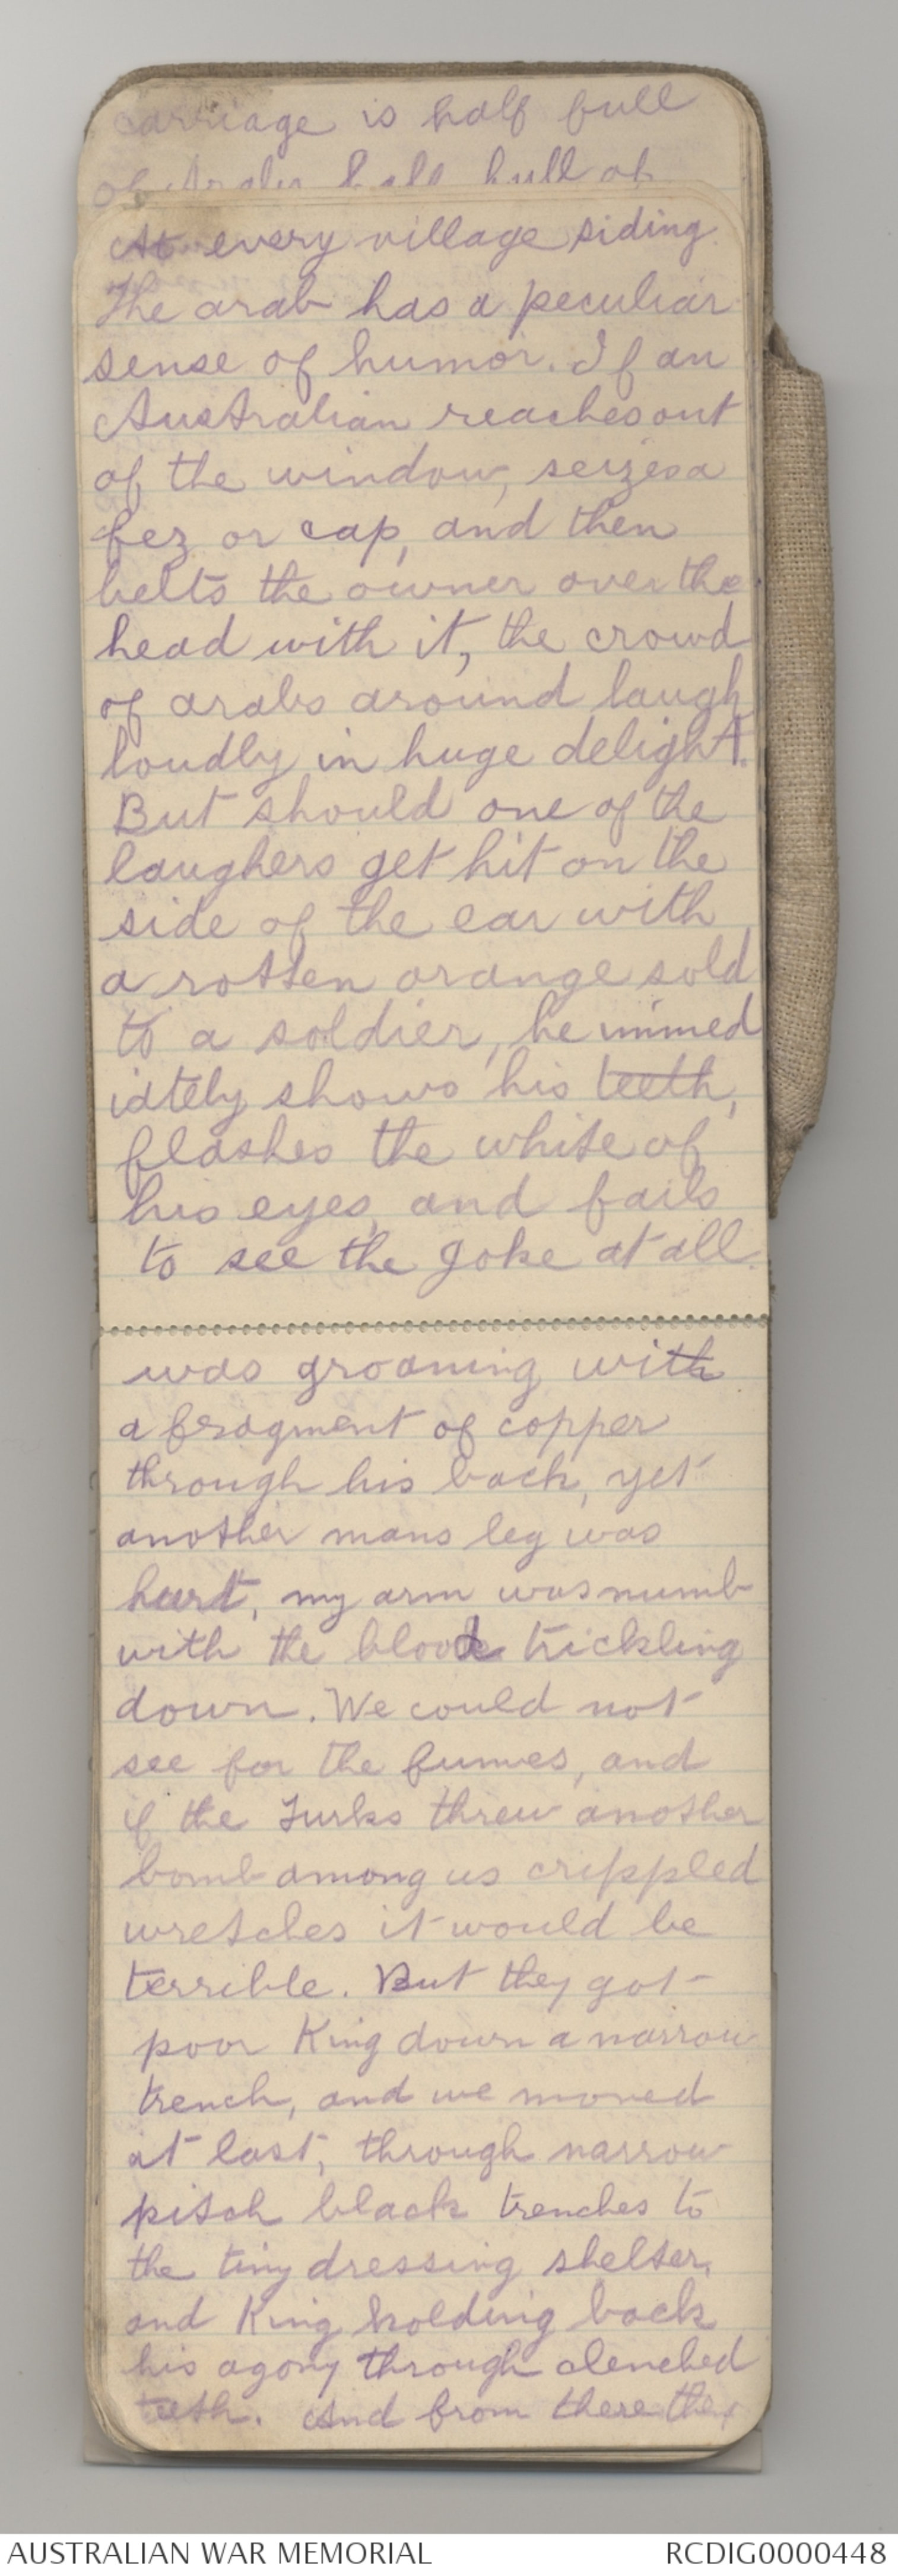 carriage is half full
of Arabs & all full of
At every village siding.
The arab has a peculiar
sense of humor. If an
Australian reaches out
of the window, seizes a
fez or cap, and then
belts the owner over the
head with it, the crowd
of arabs around laugh
loudly in huge delight.
But should one of the
laughers get hit on the
side of the ear with
a rotten orange sold
to a soldier, he immed
iately shows his teeth,
flashes the white of
his eyes, and fails
to see the joke at all.
was groaning with
a fragment of copper
through his back, yet
another mans leg was
hurt, my arm was numb
with the blood trickling
down. We could not
see for the fumes, and
if the Turks threw another
bomb among us crippled
wretches it would be
terrible. But they got
poor King down a narrow
trench, and we moved
at last, through narrow
pitch black trenches to
the tiny dressing shelter,
and King holding back
his agony through clenched
teeth. And from there they
AUSTRALIAN WAR MEMORIAL
RCDIG0000448